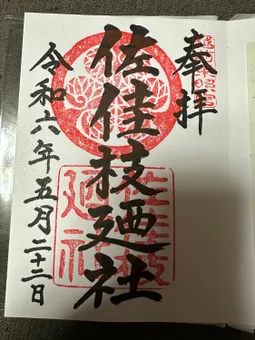 奉拝
佐佳枝廼社
令和六年五月二十二日
佐佳枝
廼社